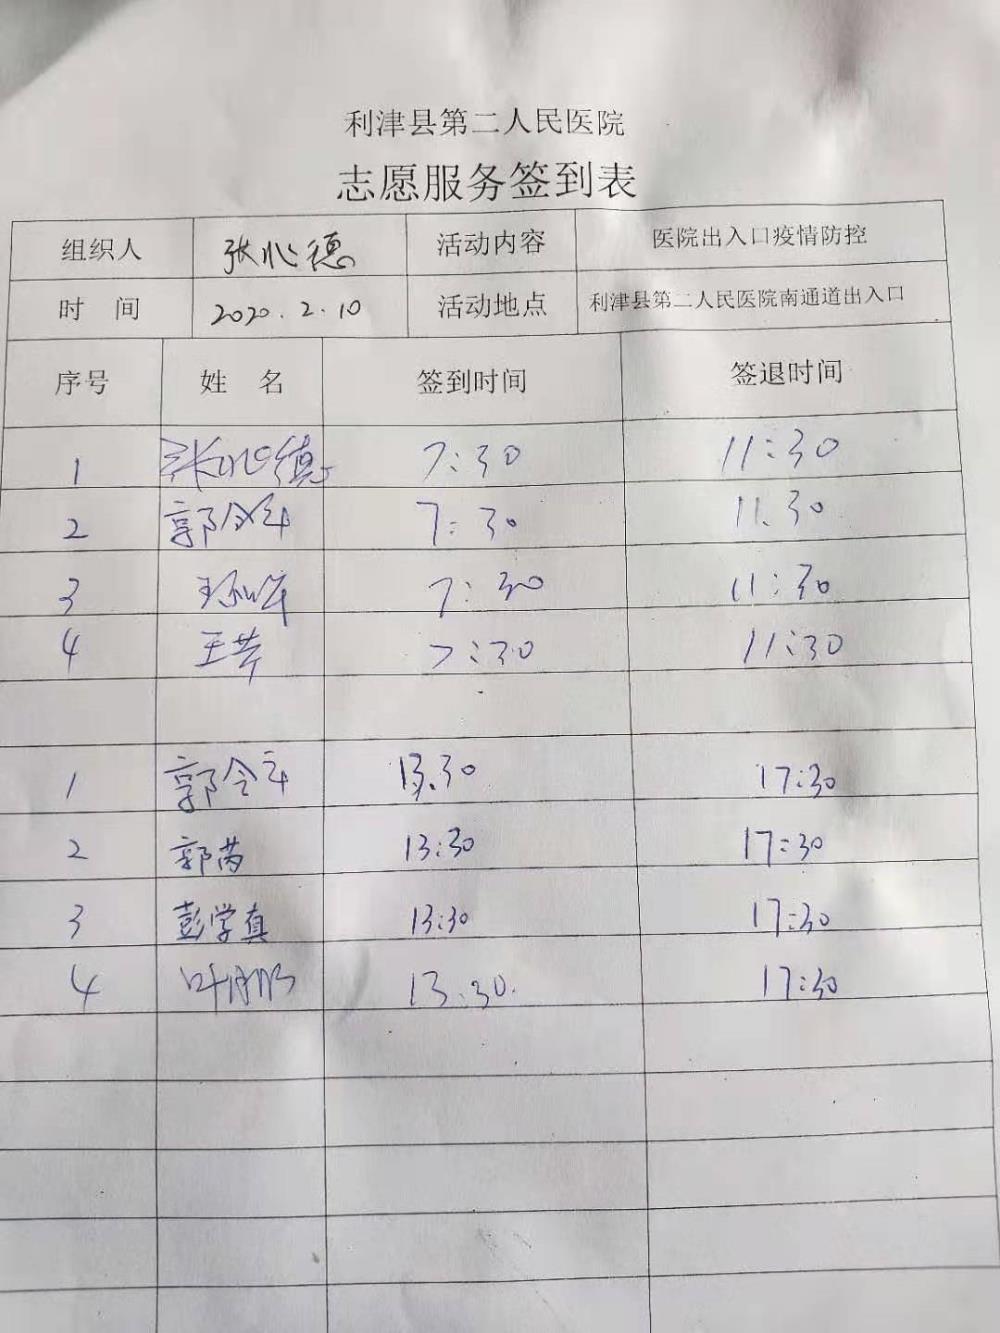 利津县第二人民医院
志愿服务签到表
组织人 张心德 活动内容 医院出入口疫情防控
时 间 2020.2.10 活动地点 利津县第二人民医院南通道出入口
序号 姓 名 签到时间 签退时间
1 张心德 7:30 11:30
2 郭令军 7:30 11.30
3 7:30 11:30
4 王芹 7:30 11:30
1 郭令军 13.30 17:30
2 郭芮 13:30 17:30
3 彭学真 13:30 17:30
4 13.30. 17:30